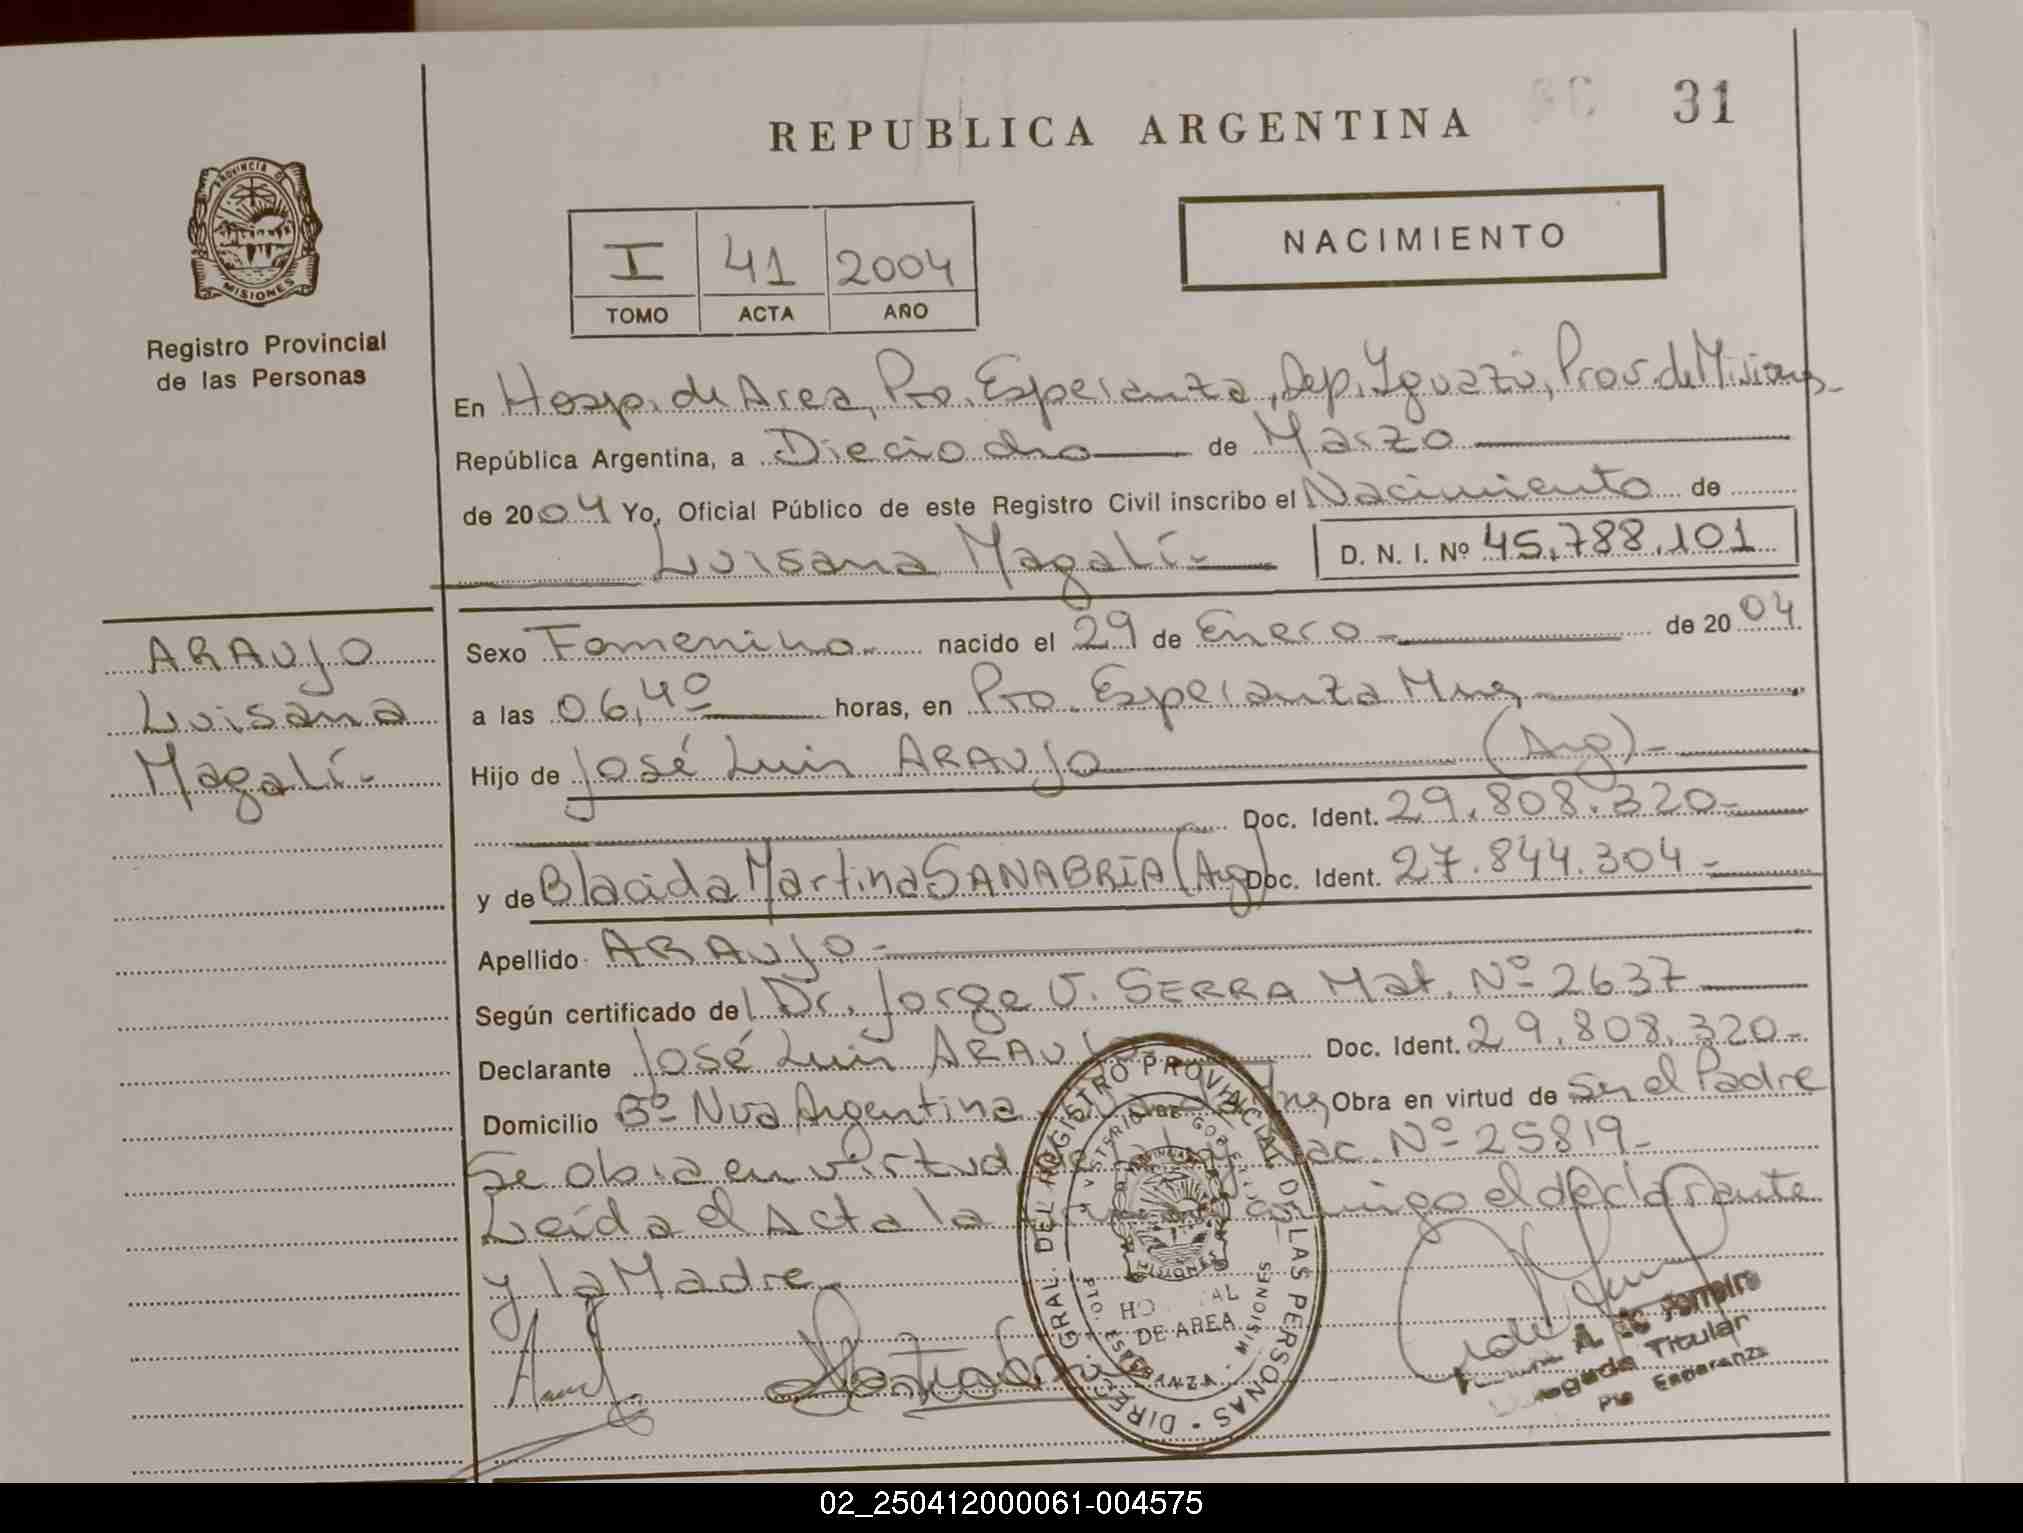 31
REPUBLICA ARGENTINA
PROVINCIA DE
MISIONES
Registro Provincial
de las Personas
I 41 2004
TOMO ACTA AÑO
NACIMIENTO
En Hosp. de Area, Pto. Esperanza, Dep. Iguazú, Prov. de Misiones-
República Argentina, a Dieciocho de Marzo
de 2004 Yo, Oficial Público de este Registro Civil inscribo el Nacimiento de
Luisana Magalí-
D. N. I. Nº 45.788.101
ARAUJO
Luisana
Magalí-
Sexo Femenino- nacido el 29 de Enero- de 2004
a las 06,40 horas, en Pto. Esperanza Mnes
Hijo de José Luis ARAUJO (Arg)-
Doc. Ident. 29.808.320-
y de Blacida Martina SANABRIA (Arg) Doc. Ident. 27.844.304-
Apellido ARAUJO-
Según certificado del Dr. Jorge V. SERRA Mat. Nº 2637
Declarante José Luis ARAUJO Doc. Ident. 29.808.320-
Domicilio Bº Nva Argentina Mnes Obra en virtud de Ser el Padre
Se obra en virtud de la Ley Nac. Nº 25819-
Leída el Acta la conmigo el declarante
y la Madre-
DIREC. GRAL. DEL REGISTRO PROVINCIAL DE LAS PERSONAS
MISIONES
HOSPITAL
DE AREA
PTO. ESPERANZA - MISIONES
Titular
Pto Esperanza
02_250412000061-004575